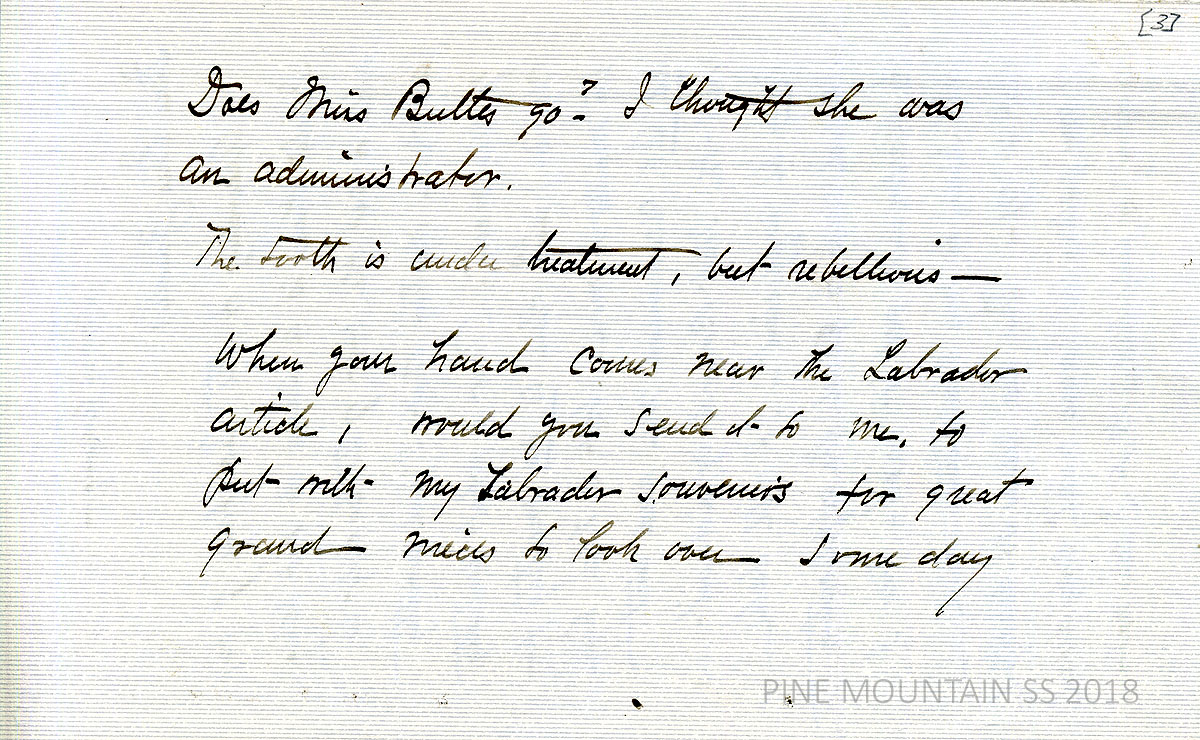 [3]
Does Miss Butler go? I thought she was
an administrator.
The tooth is under treatment, but rebellious —
When your hand comes near the Labrador
article, would you send it to me, to
put with my Labrador souvenirs for great
grand nieces to look over some day
PINE MOUNTAIN SS 2018